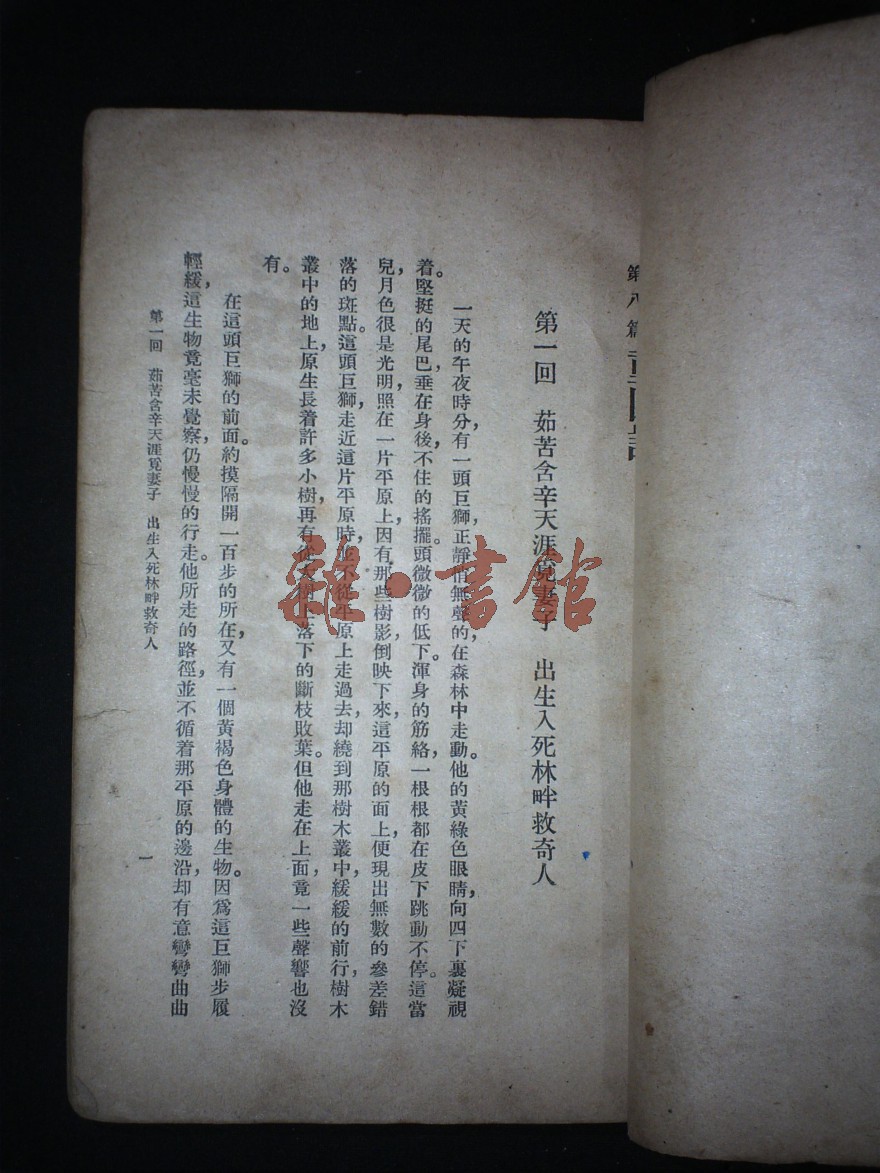 第八篇
第一回　茹苦含辛天涯覓妻子　出生入死林畔救奇人
一天的午夜時分，有一頭巨獅正靜悄無聲的在森林中走動。他的黃綠色眼睛，向四下裏凝視
着。堅挺的尾巴垂在身後，不住的搖擺。頭微微的低下。渾身的筋絡，一根根都在皮下跳動不停。這當
兒，月色很是光明，照在一片平原上，因有那些樹影倒映下來，這平原的面上，便現出無數的參差錯
落的斑點。這頭巨獅，走近這片平原時，並不從平原上走過去，却繞到那樹木叢中，緩緩的前行，樹木
叢中的地上，原生長着許多小樹，再有從大樹上落下的斷枝敗葉。但他走在上面，竟一些聲響也沒
有。
在這頭巨獅的前面。約摸隔開一百步的所在，又有一個黃褐色身體的生物。因爲這巨獅步履
輕緩，這生物竟毫未覺察，仍慢慢的行走。他所走的路徑，並不循着那平原的邊沿，却有意彎彎曲曲
第一回　茹苦含辛天涯覓妻子　出生入死林畔救奇人
一
雜·書館